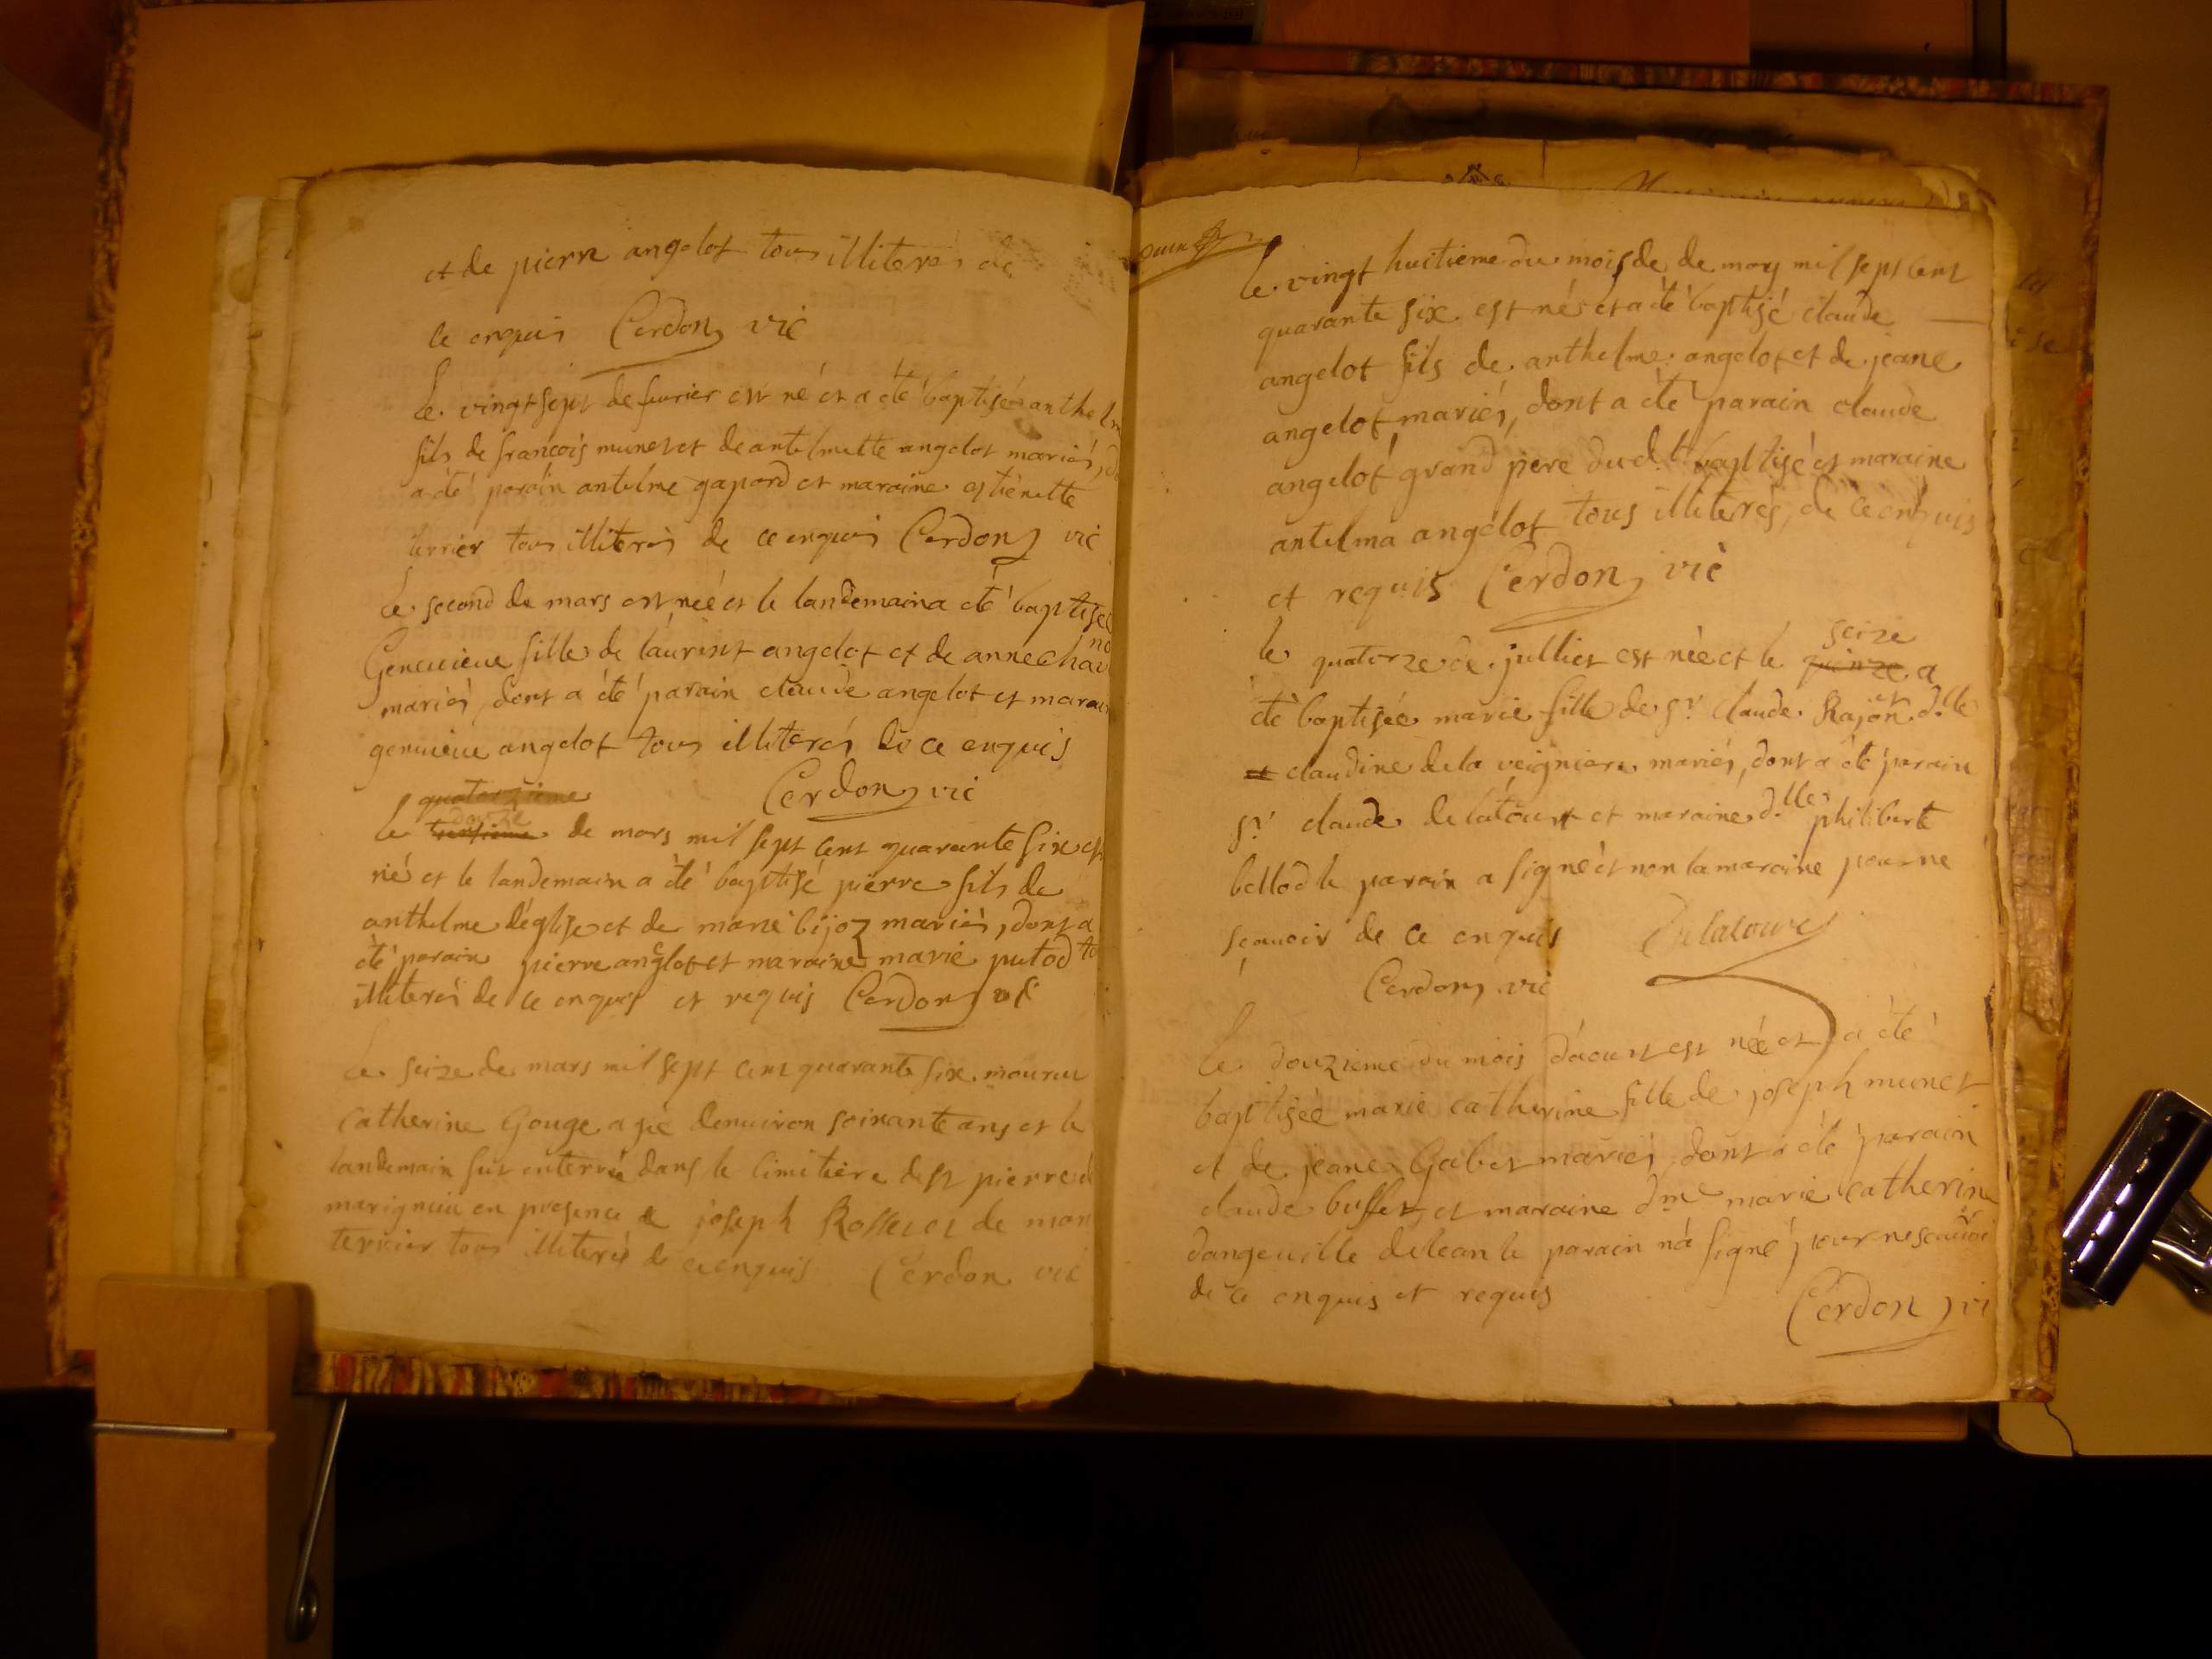 et de pierre angelot tous illiterés de
ce enquis Cerdon vic
Le vingt sept de fevrier est né et a été baptisé anthelm
fils de francois munet et de antelmette angelot mariés, d
a été parain antelme gapard et maraine estienette
terrier tous illiterés de ce enquis Cerdon vic
Le second de mars est née et le landemain a été baptisée
Genevieve fille de laurent angelot et de anne chav
mariés, dont a été parain claude angelot et marai
genevieve angelot tous illiterés de ce enquis
Cerdon vic
quatorzieme
douze
le de mars mil sept cent quarante six est
né et le landemain a été baptisé pierre fils de
anthelme déglise et de marie bijoz mariés, dont a
été parain pierre anglot et maraine marie putod to
illiterés de ce enquis et requis Cerdon vic
Le seize de mars mil sept cent quarante six mourut
catherine Gouge agée denviron soixante ans et le
landemain fut enterrée dans le cimitière de st pierre d
marignieu en presence de joseph Rosset et de mar
terrier tous illiterés de ce enquis Cerdon vic
Le vingt huitieme du mois de de may mil sept cent
quarante six est né et a été baptisé claude
angelot fils de anthelme angelot et de jeane
angelot mariés, dont a été parain claude
angelot grand pere du d.t baptisé et maraine
antelma angelot tous illiterés, de ce enquis
et requis Cerdon vic
seize
le quatorze de julliet est née et le quinze a
été baptisée marie fille de sr claude Rajon et d.lle
et claudine de la veigniere mariés, dont a été parain
sr claude de latour et maraine d.lle philiberte
bellod le parain a signé et non la maraine pour ne
sçavoir de ce enquis Delatoure
Cerdon vic
Le douzieme du mois d'aoust est née et a été
baptisée marie catherine fille de joseph munet
et de jeane Gabet mariés, dont a été parain
claude buffet et maraine dme marie catherine
dangeville delean le parain n'a signé pour ne scavoir
de ce enquis et requis
Cerdon vi